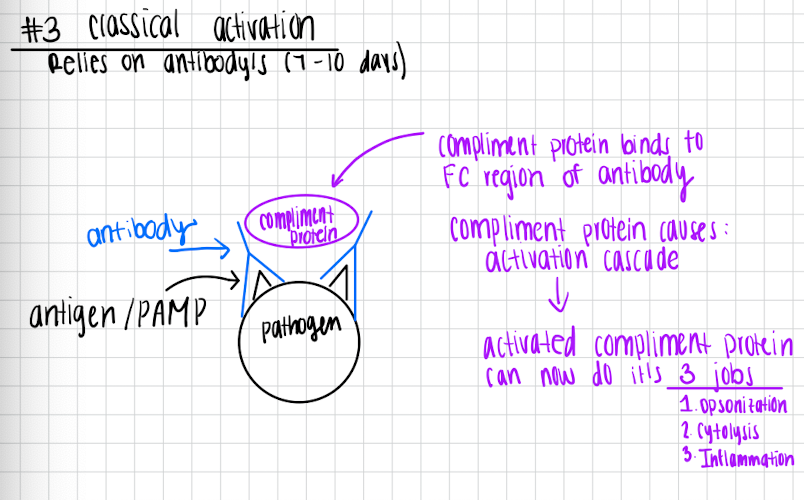 #3 classical activation
Relies on antibody/s (7-10 days)
compliment protein binds to
FC region of antibody
compliment
protein
antibody
compliment protein causes:
activation cascade
antigen/PAMP
pathogen
activated compliment protein
can now do it's 3 jobs
1. Opsonization
2. Cytolysis
3. Inflammation